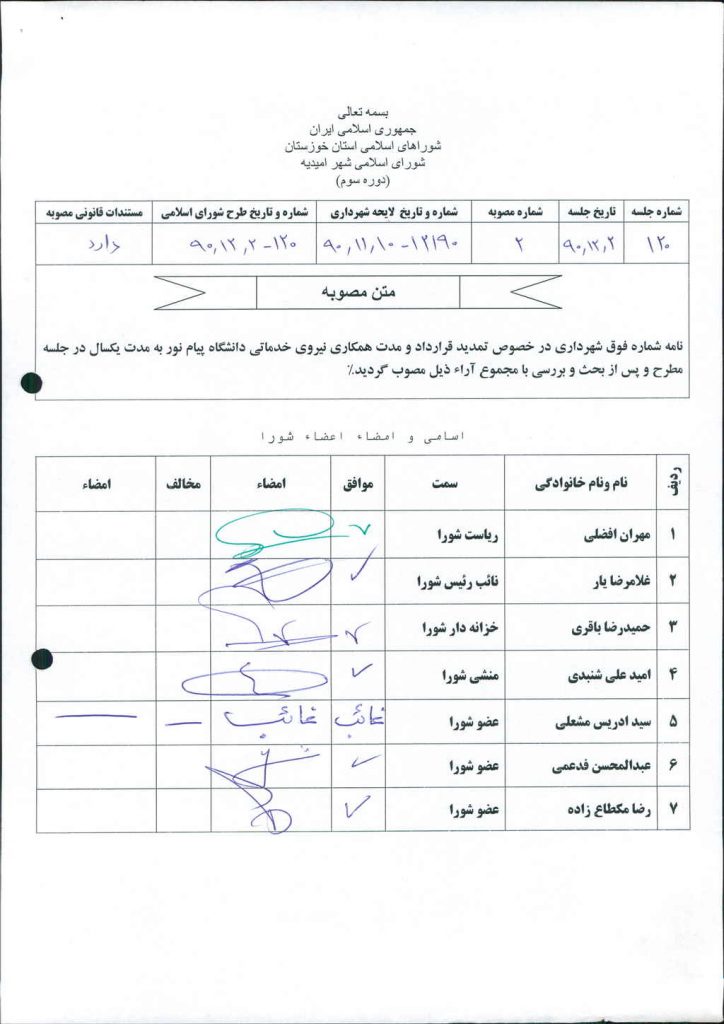 بسمه تعالی
جمهوری اسلامی ایران
شوراهای اسلامی استان خوزستان
شورای اسلامی شهر امیدیه
(دوره سوم)
شماره جلسه تاریخ جلسه شماره مصوبه شماره و تاریخ لایحه شهرداری شماره و تاریخ طرح شورای اسلامی مستندات قانونی مصوبه
۱۲۰ ۹۰,۱۲,۲ ۲ ۹۰,۱۱,۱۰-۱۲۱۹۰ ۹۰,۱۲,۲-۱۲۰ دارد
متن مصوبه
نامه شماره فوق شهرداری در خصوص تمدید قرارداد و مدت همکاری نیروی خدماتی دانشگاه پیام نور به مدت یکسال در جلسه
مطرح و پس از بحث و بررسی با مجموع آراء ذیل مصوب گردید.٪
اسامی و امضاء اعضاء شورا
ردیف نام ونام خانوادگی سمت موافق امضاء مخالف امضاء
۱ مهران افضلی ریاست شورا
۲ غلامرضا یار نائب رئیس شورا
۳ حمیدرضا باقری خزانه دار شورا
۴ امید علی شنبدی منشی شورا
۵ سید ادریس مشعلی عضو شورا غائب غائب
۶ عبدالمحسن فدعمی عضو شورا
۷ رضا مکطاع زاده عضو شورا